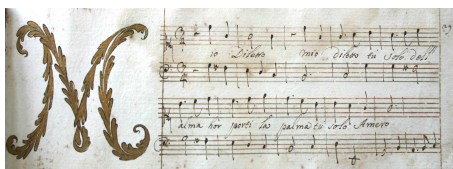 M
io Diletto mio diletto tu solo dell
alma hor porti la palma tu solo Amero